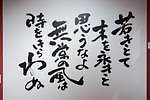 若きとて
末を永きと
思うなよ
無常の風は
時をきらわぬ